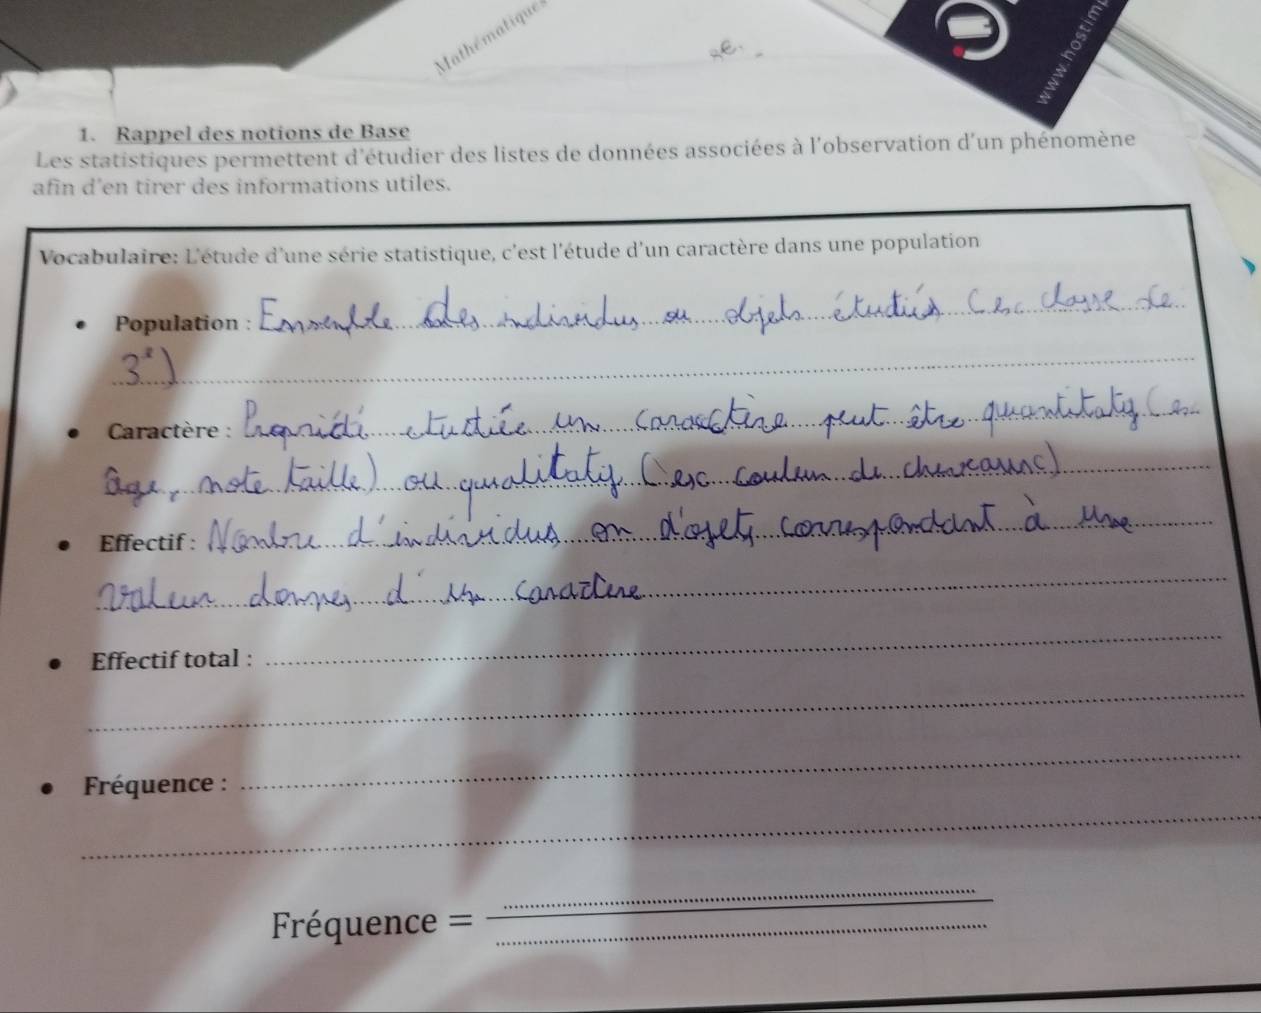 Mathématiques
www.hostim
1. Rappel des notions de Base
Les statistiques permettent d'étudier des listes de données associées à l'observation d'un phénomène
afin d'en tirer des informations utiles.
Vocabulaire: L'étude d'une série statistique, c'est l'étude d'un caractère dans une population
• Population : Ensemble des individus ou objets étudiés (esc classe de
3e)
• Caractère : Propriété etudiée un caractère peut être quantitatif (en
âge, note taille) ou qualitatif (esc couleur de cheveaux)
• Effectif : Nombre d'individus on d'ojets correspondant à une
valeur donnes d'un caractère
• Effectif total :
• Fréquence :
Fréquence =